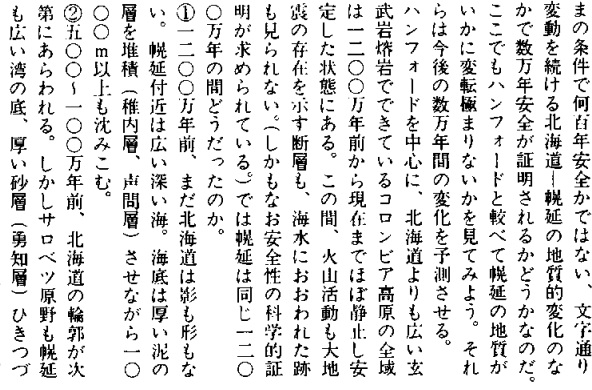 まの条件で何百年安全かではない、文字通り
変動を続ける北海道―幌延の地質的変化のな
かで数万年安全が証明されるかどうかなのだ。
ここでもハンフォードと較べて幌延の地質が
いかに変転極まりないかを見てみよう。それ
らは今後の数万年間の変化を予測させる。
ハンフォードを中心に、北海道よりも広い玄
武岩熔岩でできているコロンビア高原の全域
は一二〇〇万年前から現在までほぼ静止し安
定した状態にある。この間、火山活動も大地
震の存在を示す断層も、海水におおわれた跡
も見られない。(しかもなお安全性の科学的証
明が求められている。)では幌延は同じ一二〇
〇万年の間どうだったのか。
①一二〇〇万年前、まだ北海道は影も形もな
い。幌延付近は広い深い海。海底は厚い泥の
層を堆積(稚内層、声問層)させながら一〇
〇〇m以上も沈みこむ。
②五〇〇〜一〇〇万年前、北海道の輪郭が次
第にあらわれる。しかしサロベツ原野も幌延
も広い湾の底、厚い砂層(勇知層)ひきつづ